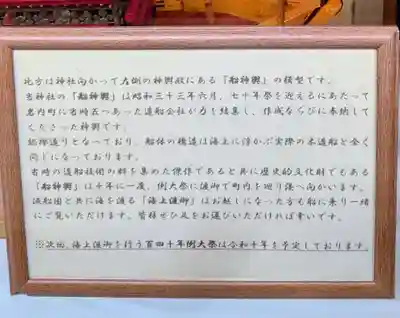 此方は神社向かって左側の神輿殿にある「船神輿」の模型です。
当神社の「船神輿」は昭和三十三年六月、七十年祭を迎えるにあたって
岩内町に当時五つあった造船会社が力を結集し、作成ならびに奉納して
くださった神輿です。
総欅造りとなっており、船体の構造は海上に浮かぶ実際の木造船と全く
同じになっております。
当時の造船技術の粋を集めた傑作であると共に歴史的文化財でもある
「船神輿」は十年に一度、例大祭に渡御で町内を巡り港へ向かいます。
漁船団と共に海を渡る「海上渡御」はお越しになった方も船に乗り一緒
にご覧いただけます。皆様ぜひ足をお運びいただければ幸いです。
※次回、海上渡御を行う百四十年例大祭は令和十年を予定しております。